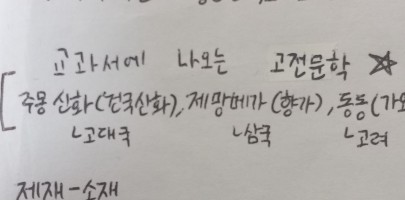 교과서에 나오는 고전문학 ☆
[ 주몽 신화(건국신화), 제망매가(향가), 동동(가요
ㄴ고대국 ㄴ삼국 ㄴ고려
제재-소재